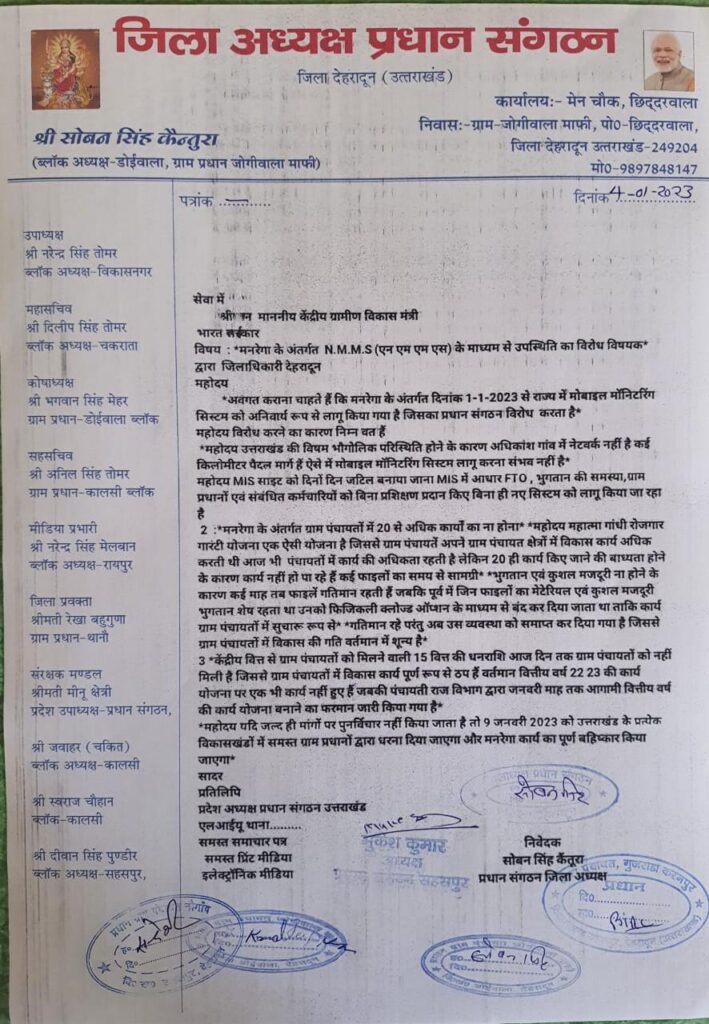 जिला अध्यक्ष प्रधान संगठन
जिला देहरादून (उत्तराखंड)
कार्यालय:- मेन चौक, छिद्दरवाला
निवास:-ग्राम-जोगीवाला माफी, पो0-छिद्दरवाला,
जिला देहरादून उत्तराखण्ड-249204
मो0-9897848147
श्री सोबन सिंह कैन्तुरा
(ब्लॉक अध्यक्ष-डोईवाला, ग्राम प्रधान जोगीवाला माफी)
पत्रांक ............
दिनांक 4-01-2023
उपाध्यक्ष
श्री नरेन्द्र सिंह तोमर
ब्लॉक अध्यक्ष-विकासनगर
महासचिव
श्री दिलीप सिंह तोमर
ब्लॉक अध्यक्ष-चकराता
कोषाध्यक्ष
श्री भगवान सिंह मेहर
ग्राम प्रधान-डोईवाला ब्लॉक
सहसचिव
श्री अनिल सिंह तोमर
ग्राम प्रधान-कालसी ब्लॉक
मीडिया प्रभारी
श्री नरेन्द्र सिंह मेलबान
ब्लॉक अध्यक्ष-रायपुर
जिला प्रवक्ता
श्रीमती रेखा बहुगुणा
ग्राम प्रधान-थानौ
संरक्षक मण्डल
श्रीमती मीनू क्षेत्री
प्रदेश उपाध्यक्ष-प्रधान संगठन,
श्री जवाहर (चकित)
ब्लॉक अध्यक्ष-कालसी
श्री स्वराज चौहान
ब्लॉक-कालसी
श्री दीवान सिंह पुण्डीर
ब्लॉक अध्यक्ष-सहसपुर,
सेवा में
माननीय केंद्रीय ग्रामीण विकास मंत्री
भारत सरकार
विषय : *मनरेगा के अंतर्गत N.M.M.S (एन एम एम एस) के माध्यम से उपस्थिति का विरोध विषयक*
द्वारा जिलाधिकारी देहरादून
महोदय
*अवगत कराना चाहते हैं कि मनरेगा के अंतर्गत दिनांक 1-1-2023 से राज्य में मोबाइल मॉनिटरिंग
सिस्टम को अनिवार्य रूप से लागू किया गया है जिसका प्रधान संगठन विरोध करता है*
महोदय विरोध करने का कारण निम्न वत हैं
*महोदय उत्तराखंड की विषम भौगोलिक परिस्थिति होने के कारण अधिकांश गांव में नेटवर्क नहीं है कई
किलोमीटर पैदल मार्ग हैं ऐसे में मोबाइल मॉनिटरिंग सिस्टम लागू करना संभव नहीं है*
महोदय MIS साइट को दिनों दिन जटिल बनाया जाना MIS में आधार FTO , भुगतान की समस्या,ग्राम
प्रधानों एवं संबंधित कर्मचारियों को बिना प्रशिक्षण प्रदान किए बिना ही नए सिस्टम को लागू किया जा रहा
है
2 :*मनरेगा के अंतर्गत ग्राम पंचायतों में 20 से अधिक कार्यो का ना होना* *महोदय महात्मा गांधी रोजगार
गारंटी योजना एक ऐसी योजना है जिससे ग्राम पंचायतें अपने ग्राम पंचायत क्षेत्रों में विकास कार्य अधिक
करती थी आज भी पंचायतों में कार्य की अधिकता रहती है लेकिन 20 ही कार्य किए जाने की बाध्यता होने
के कारण कार्य नहीं हो पा रहे हैं कई फाइलों का समय से सामग्री* *भुगतान एवं कुशल मजदूरी ना होने के
कारण कई माह तब फाइलें गतिमान रहती हैं जबकि पूर्व में जिन फाइलों का मेटेरियल एवं कुशल मजदूरी
भुगतान शेष रहता था उनको फिजिकली क्लोज्ड ऑप्शन के माध्यम से बंद कर दिया जाता था ताकि कार्य
ग्राम पंचायतों में सुचारू रूप से* *गतिमान रहे परंतु अब उस व्यवस्था को समाप्त कर दिया गया है जिससे
ग्राम पंचायतों में विकास की गति वर्तमान में शून्य है*
3 *केंद्रीय वित्त से ग्राम पंचायतों को मिलने वाली 15 वित्त की धनराशि आज दिन तक ग्राम पंचायतों को नहीं
मिली है जिससे ग्राम पंचायतों में विकास कार्य पूर्ण रूप से ठप हैं वर्तमान वित्तीय वर्ष 22 23 की कार्य
योजना पर एक भी कार्य नहीं हुए हैं जबकी पंचायती राज विभाग द्वारा जनवरी माह तक आगामी वित्तीय वर्ष
की कार्य योजना बनाने का फरमान जारी किया गया है*
*महोदय यदि जल्द ही मांगों पर पुनर्विचार नहीं किया जाता है तो 9 जनवरी 2023 को उत्तराखंड के प्रत्येक
विकासखंडों में समस्त ग्राम प्रधानों द्वारा धरना दिया जाएगा और मनरेगा कार्य का पूर्ण बहिष्कार किया
जाएगा*
सादर
प्रतिलिपि
प्रदेश अध्यक्ष प्रधान संगठन उत्तराखंड
एलआईयू थाना..........
समस्त समाचार पत्र
समस्त प्रिंट मीडिया
इलेक्ट्रॉनिक मीडिया
मुकेश कुमार
अध्यक्ष
सहसपुर
निवेदक
सोबन सिंह कैंतूरा
प्रधान संगठन जिला अध्यक्ष
प्रधान